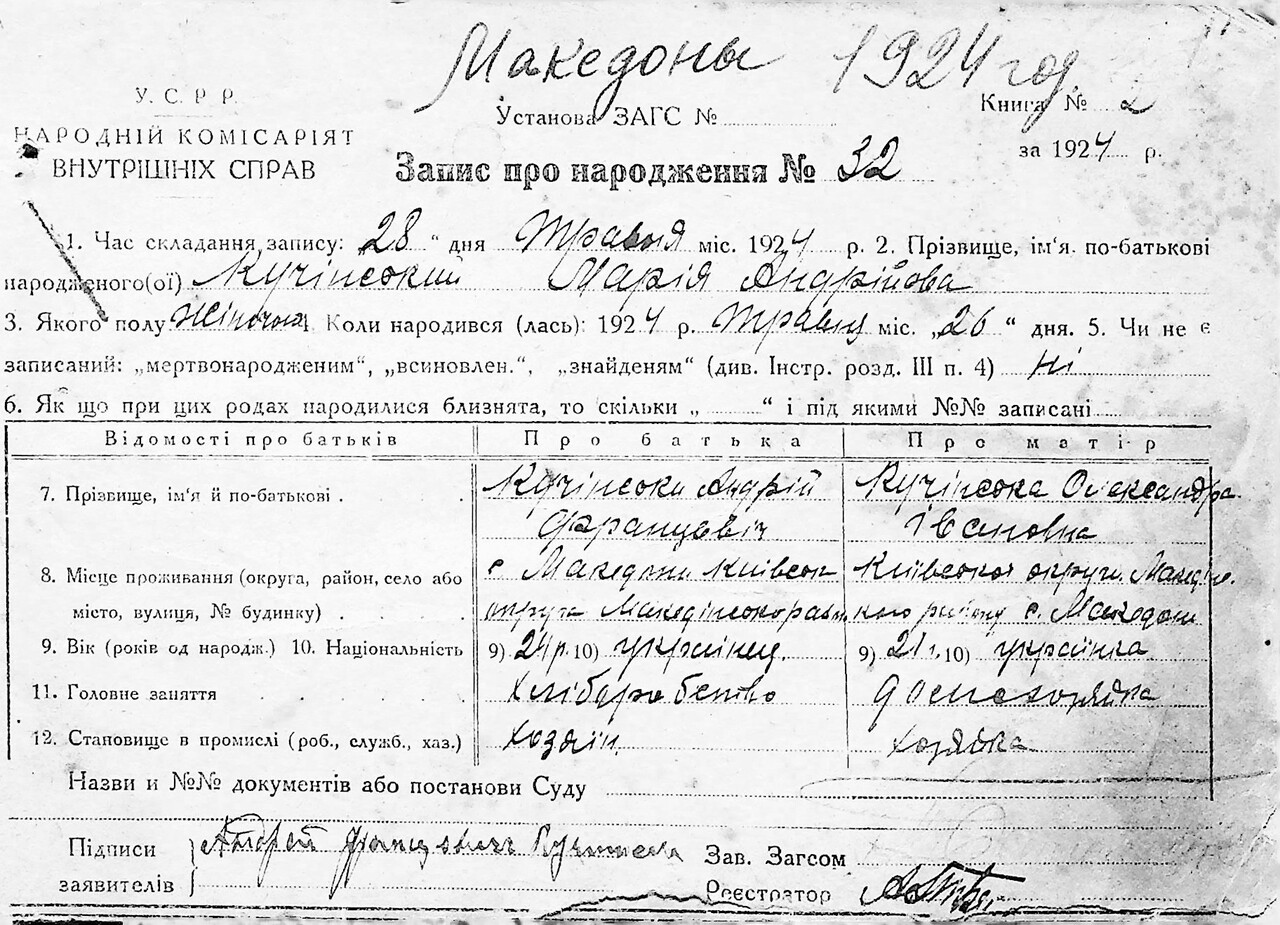 Македоны 1924 год
У. С. Р. Р.
Установа ЗАГС №
Книга № 2
НАРОДНІЙ КОМІСАРІЯТ
ВНУТРІШНІХ СПРАВ
за 1924 р.
Запис про народження № 32
1. Час складання запису: „28 “ дня Травня міс. 1924 р. 2. Прізвище, ім'я по-батькові
народженого(ої) Кучінський Марія Андрійова
3. Якого полу Жіночоі 4. Коли народився (лась): 1924 р. Травня міс. „26 “ дня. 5. Чи не є
записаний: „мертвонародженим“, „всиновлен.“, „знайденям“ (див. Інстр. розд. III п. 4) Ні
6. Як що при цих родах народилися близнята, то скільки „ “ і під якими №№ записані
Відомості про батьків Про батька Про матір
7. Прізвище, ім'я й по-батькові Кучінськи Андрій Кучінська Олександра
Францовіч Івановна
8. Місце проживання (округа, район, село або с. Македони Київськ Київськоі округи Македін.
місто, вулиця, № будинку) округа кого району с. Македони
9. Вік (років од народж.) 10. Національність 9) 24 р. 10) українец 9) 21 р. 10) українка
11. Головне заняття Хліборобство
12. Становище в промислі (роб., служб., хаз.) хозяін хозяйка
Назви и №№ документів або постанови Суду
Підписи Андрей Францович Зав. Загсом
заявителів Реєстратор